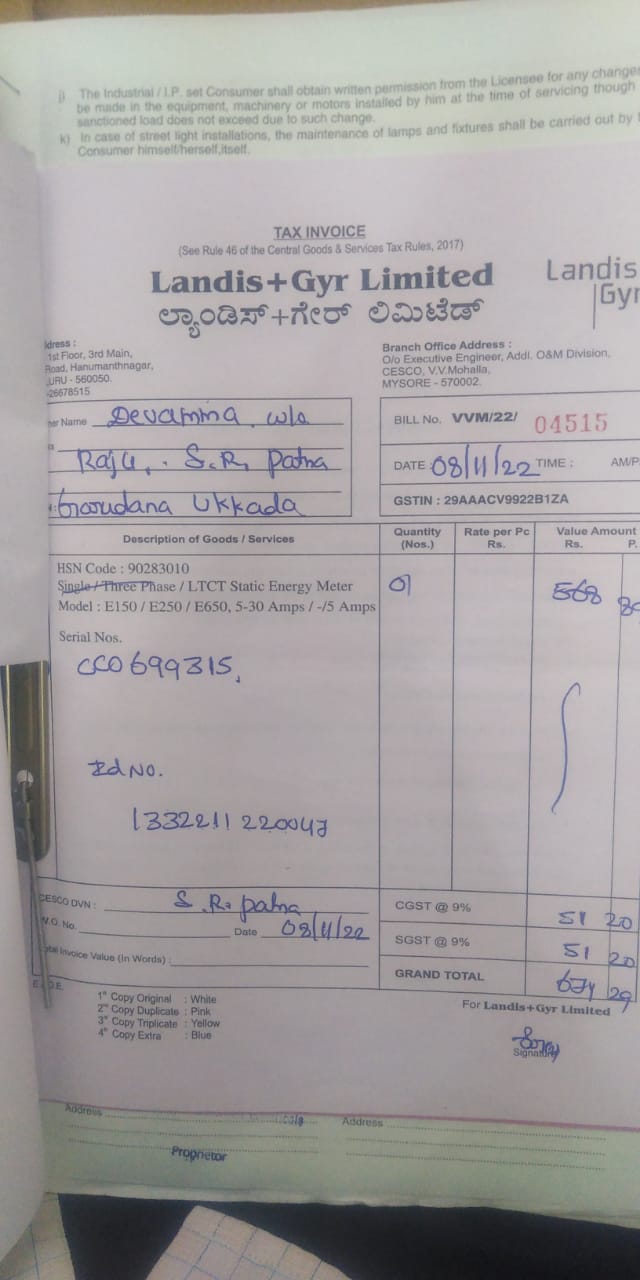 j) The Industrial / I.P. set Consumer shall obtain written permission from the Licensee for any change
be made in the equipment, machinery or motors installed by him at the time of servicing though
sanctioned load does not exceed due to such change.
k) In case of street light installations, the maintenance of lamps and fixtures shall be carried out by
Consumer himself/herself,itself.
TAX INVOICE
(See Rule 46 of the Central Goods & Services Tax Rules, 2017)
Landis+Gyr Limited
Landis
Gyr
ಲ್ಯಾಂಡಿಸ್+ಗೇರ್ ಲಿಮಿಟೆಡ್
1st Floor, 3rd Main,
Road, Hanumanthnagar,
URU - 560050.
26678515
Branch Office Address :
O/o Executive Engineer, Addl. O&M Division,
CESCO, V.V.Mohalla,
MYSORE - 570002.
Name Devamma w/o
Raju, S.R. Patna
Garudana Ukkada
BILL No. VVM/22/ 04515
DATE 08/11/22 TIME : AM/P
GSTIN : 29AAACV9922B1ZA
Description of Goods / Services Quantity (Nos.) Rate per Pc Rs. Value Amount Rs. P.
HSN Code : 90283010
Single / Three Phase / LTCT Static Energy Meter 01 568
Model : E150 / E250 / E650, 5-30 Amps / -/5 Amps
Serial Nos.
CC0699315,
Id No.
CESCO DVN : S.R. Patna
W.O. No. Date 08/11/22
Invoice Value (In Words) :
CGST @ 9% 51 20
SGST @ 9% 51 20
GRAND TOTAL
E.&O.E.
1st Copy Original : White
2nd Copy Duplicate : Pink
3rd Copy Triplicate : Yellow
4th Copy Extra : Blue
For Landis+Gyr Limited
Signature
Address Address
Proprietor